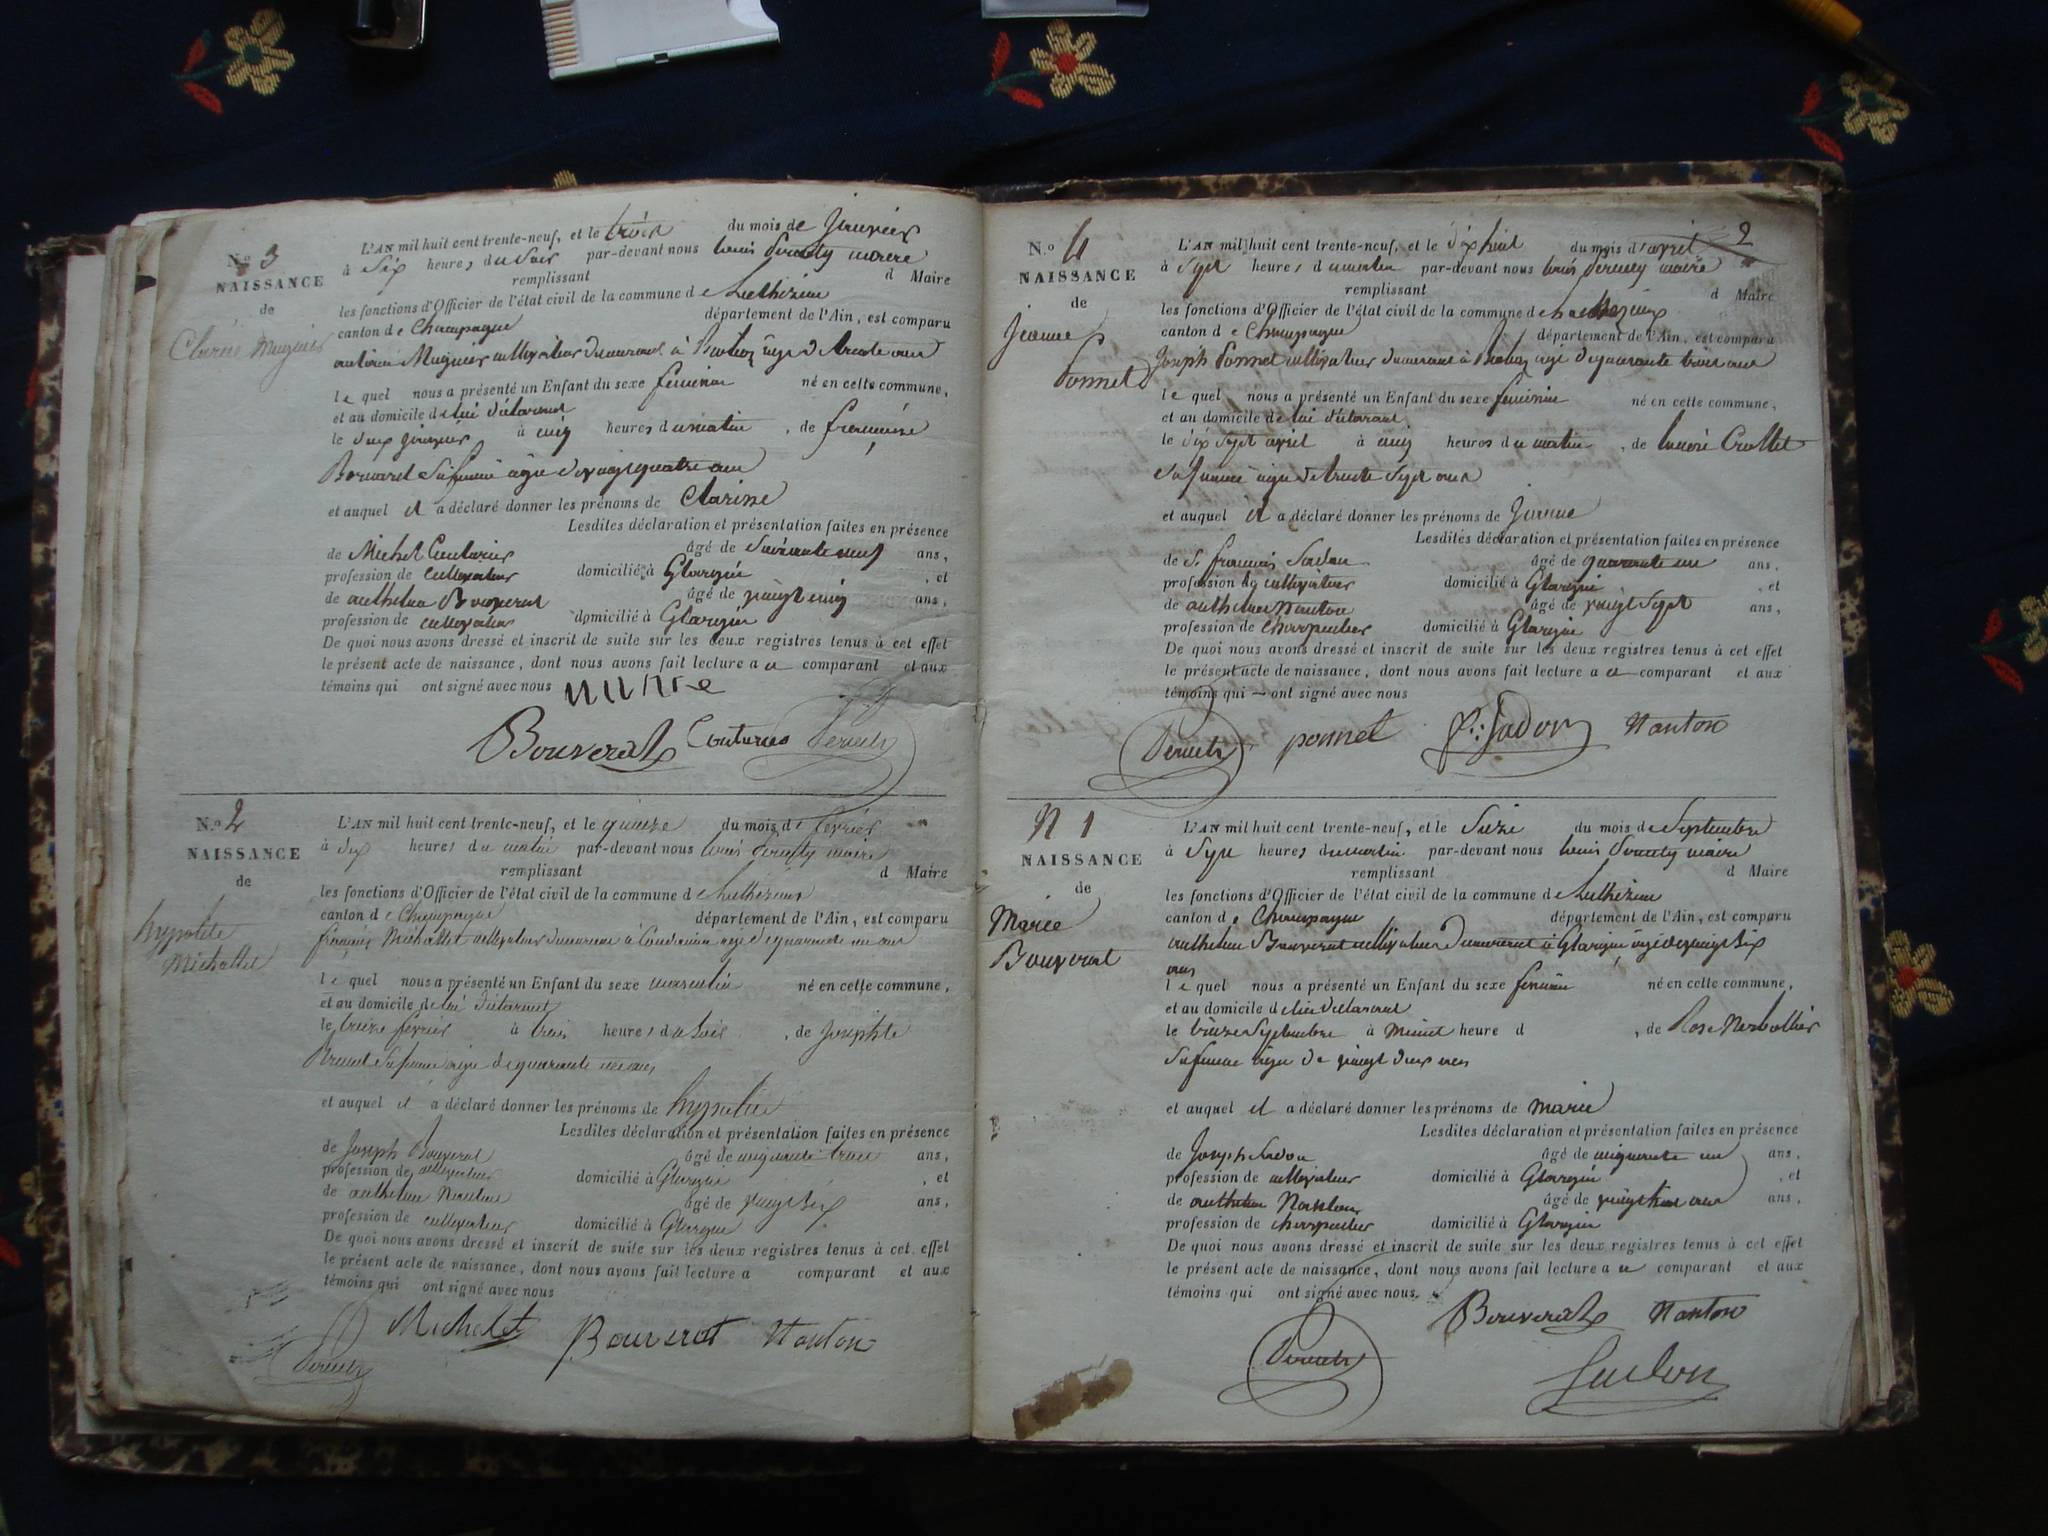 N.o 3
NAISSANCE
de
L'AN mil huit cent trente-neuf, et le trois du mois de Janvier
à Six heures du Soir par-devant nous Louis maire
remplissant d Maire
les fonctions d'Officier de l'état civil de la commune de
canton de Champagne département de l'Ain, est comparu
cultivateur demeurant à agé de trente ans
le quel nous a présenté un Enfant du sexe feminin né en cette commune,
et au domicile de lui déclarant
le deux janvier à cinq heures du matin, de françoise
Sa femme agée de vingt quatre ans
et auquel il a déclaré donner les prénoms de Clarisse
Lesdites déclaration et présentation faites en présence
de Michel âgé de ans,
profession de cultivateur domicilié à Glargin, et
de anthelme Bouverat âgé de vingt cinq ans,
profession de cultivateur domicilié à Glargin
De quoi nous avons dressé et inscrit de suite sur les deux registres tenus à cet effet
le présent acte de naissance, dont nous avons fait lecture a ce comparant et aux
témoins qui ont signé avec nous
Bouverat
N.o 2
NAISSANCE
de
hypolite
Michallet
L'AN mil huit cent trente-neuf, et le quinze du mois de fevrier
à dix heures du matin par-devant nous Louis maire
remplissant d Maire
les fonctions d'Officier de l'état civil de la commune de
canton de Champagne département de l'Ain, est comparu
françois Michallet cultivateur demeurant à agé de quarante ans
le quel nous a présenté un Enfant du sexe masculin né en cette commune,
et au domicile de lui déclarant
le treize fevrier à trois heures du Soir, de Josephte
Sa femme agée de quarante ans
et auquel il a déclaré donner les prénoms de hypolite
Lesdites déclaration et présentation faites en présence
de Joseph Bouverat âgé de cinquante trois ans,
profession de cultivateur domicilié à Glargin, et
de anthelme Nanton âgé de vingt six ans,
profession de cultivateur domicilié à Glargin
De quoi nous avons dressé et inscrit de suite sur les deux registres tenus à cet effet
le présent acte de naissance, dont nous avons fait lecture a comparant et aux
témoins qui ont signé avec nous
Michalet Bouverat Nanton
2
N.o 4
NAISSANCE
de
Jeanne
Ponnet
L'AN mil huit cent trente-neuf, et le dix huit du mois d'avril
à Sept heures du matin par-devant nous Louis maire
remplissant d Maire
les fonctions d'Officier de l'état civil de la commune de
canton de Champagne département de l'Ain, est comparu
Joseph Ponnet cultivateur demeurant à agé de quarante trois ans
le quel nous a présenté un Enfant du sexe feminin né en cette commune,
et au domicile de lui déclarant
le dix Sept avril à cinq heures du matin, de
Sa femme agée de trente Sept ans
et auquel il a déclaré donner les prénoms de Jeanne
Lesdites déclaration et présentation faites en présence
de françois Sadon âgé de quarante un ans,
profession de cultivateur domicilié à Glargin, et
de anthelme Nanton âgé de vingt Sept ans,
profession de charpentier domicilié à Glargin
De quoi nous avons dressé et inscrit de suite sur les deux registres tenus à cet effet
le présent acte de naissance, dont nous avons fait lecture a ce comparant et aux
témoins qui ont signé avec nous
ponnet Sadon Nanton
NAISSANCE
de
Marie
Bouverat
L'AN mil huit cent trente-neuf, et le Seize du mois de Septembre
à Sept heures du matin par-devant nous Louis maire
remplissant d Maire
les fonctions d'Officier de l'état civil de la commune de
canton de Champagne département de l'Ain, est comparu
anthelme Bouverat cultivateur demeurant à Glargin agé de vingt six
ans
le quel nous a présenté un Enfant du sexe feminin né en cette commune,
et au domicile de lui déclarant
le Septembre à Minuit heure d, de Rose
Sa femme agée de vingt deux ans
et auquel il a déclaré donner les prénoms de marie
Lesdites déclaration et présentation faites en présence
de Joseph Sadon âgé de cinquante un ans,
profession de cultivateur domicilié à Glargin, et
de anthelme Nanton âgé de ans,
profession de charpentier domicilié à Glargin
De quoi nous avons dressé et inscrit de suite sur les deux registres tenus à cet effet
le présent acte de naissance, dont nous avons fait lecture a ce comparant et aux
témoins qui ont signé avec nous
Bouverat Nanton
Sadon